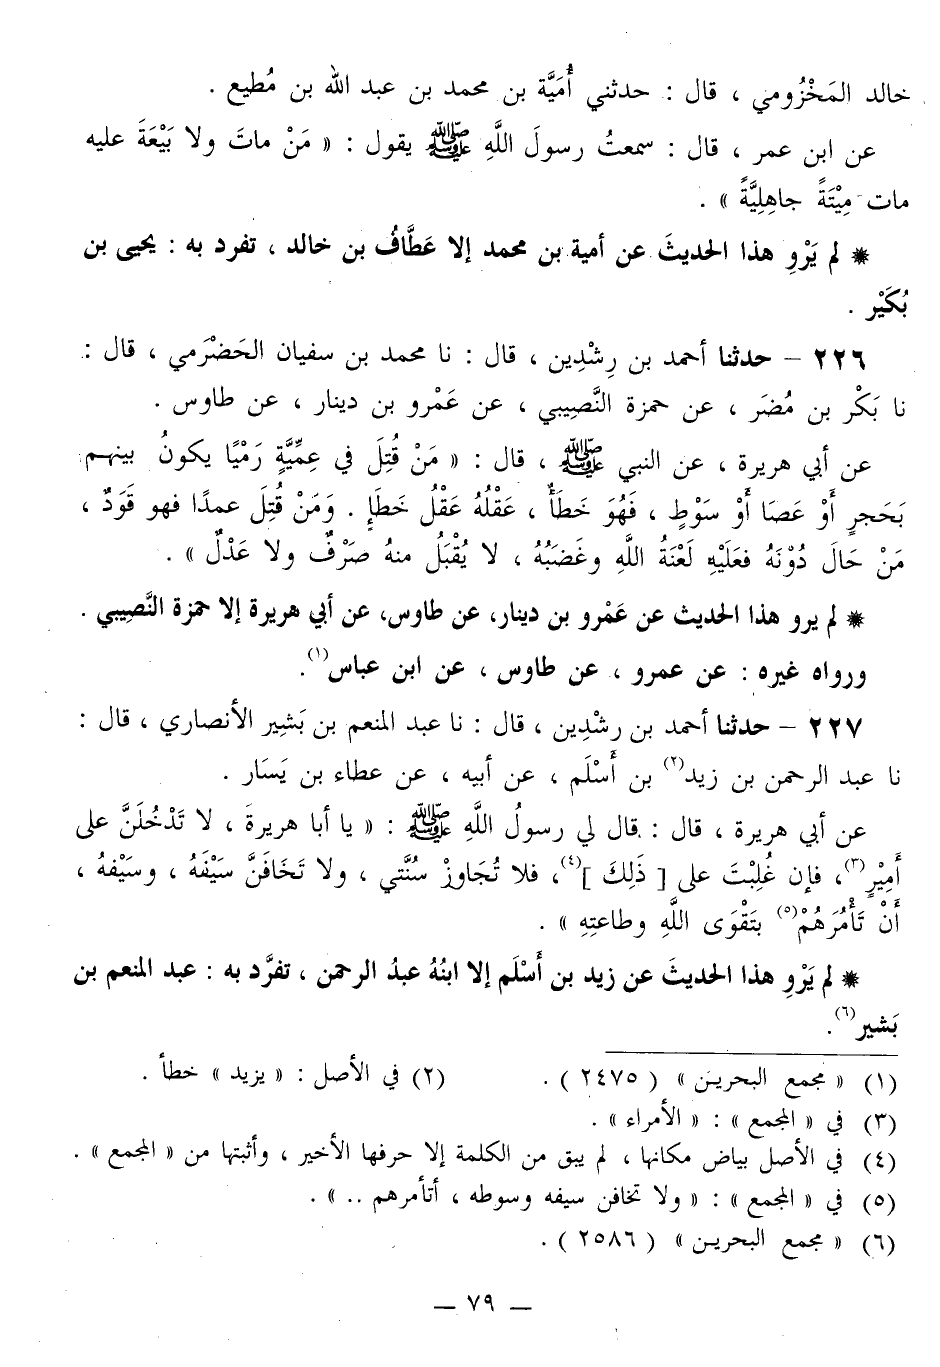 خالد المَخْزُومي ، قال : حدثني أُمَيَّة بن محمد بن عبد الله بن مُطيع .
عن ابن عمر ، قال : سمعتُ رسولَ اللَّهِ ﷺ يقول : « مَنْ ماتَ ولا بَيْعَةَ عليه
مات مِيْتَةً جاهِلِيَّةً » .
* لم يَرْوِ هذا الحديثَ عن أمية بن محمد إلا عَطَّافُ بن خالد ، تفرد به : يحيى بن
بُكَيْر .
٢٢٦ – حدثنا أحمد بن رِشْدِين ، قال : نا محمد بن سفيان الحَضْرَمي ، قال :
نا بَكْر بن مُضَر ، عن حمزة النَّصِيبي ، عن عَمْرو بن دينار ، عن طاوس .
عن أبي هريرة ، عن النبي ﷺ ، قال : « مَنْ قُتِلَ في عِمِّيَّةٍ رَمْيًا يكونُ بينهم
بَحَجرٍ أَوْ عَصَا أَوْ سَوْطٍ ، فَهُوَ خَطَأٌ ، عَقْلُهُ عَقْلُ خَطَإٍ . وَمَنْ قُتِلَ عمدًا فهو قَوَدٌ ،
مَنْ حَالَ دُوْنَهُ فعَلَيْهِ لَعْنَةُ اللَّهِ وغَضَبُهُ ، لا يُقْبَلُ منهُ صَرْفٌ ولا عَدْلٌ » .
* لم يرو هذا الحديث عن عَمْرو بن دينار، عن طاوس، عن أبي هريرة إلا حمزة النَّصِيبي .
ورواه غيره : عن عمرو ، عن طاوس ، عن ابن عباس(١).
٢٢٧ – حدثنا أحمد بن رشْدِين ، قال : نا عبد المنعم بن بَشِير الأنصاري ، قال :
نا عبد الرحمن بن زيد(٢) بن أَسْلَم ، عن أبيه ، عن عطاء بن يَسَار .
عن أبي هريرة ، قال : قال لي رسولُ اللَّهِ ﷺ : « يا أبا هريرةَ ، لا تَدْخُلَنَّ على
أَمِيْرٍ(٣)، فإن غُلِبْتَ على [ ذَلِكَ ](٤)، فلا تُجَاوِزْ سُنَّتي ، ولا تَخَافَنَّ سَيْفَهُ ، وسَيْفهُ ،
أَنْ تَأْمُرَهُمْ(٥) بتَقْوَى اللَّهِ وطاعتِهِ » .
* لم يَرْوِ هذا الحديثَ عن زيد بن أَسْلَم إلا ابنُهُ عبدُ الرحمن ، تفرَّد به : عبد المنعم بن
بَشير(٦).
(١) « مجمع البحرين » ( ٢٤٧٥ ) . (٢) في الأصل : « يزيد » خطأ .
(٣) في « المجمع » : « الأمراء » .
(٤) في الأصل بياض مكانها ، لم يبق من الكلمة إلا حرفها الأخير ، وأثبتها من « المجمع » .
(٥) في « المجمع » : « ولا تخافن سيفه وسوطه ، أتأمرهم .. » .
(٦) « مجمع البحرين » ( ٢٥٨٦ ) .
— ٧٩ —